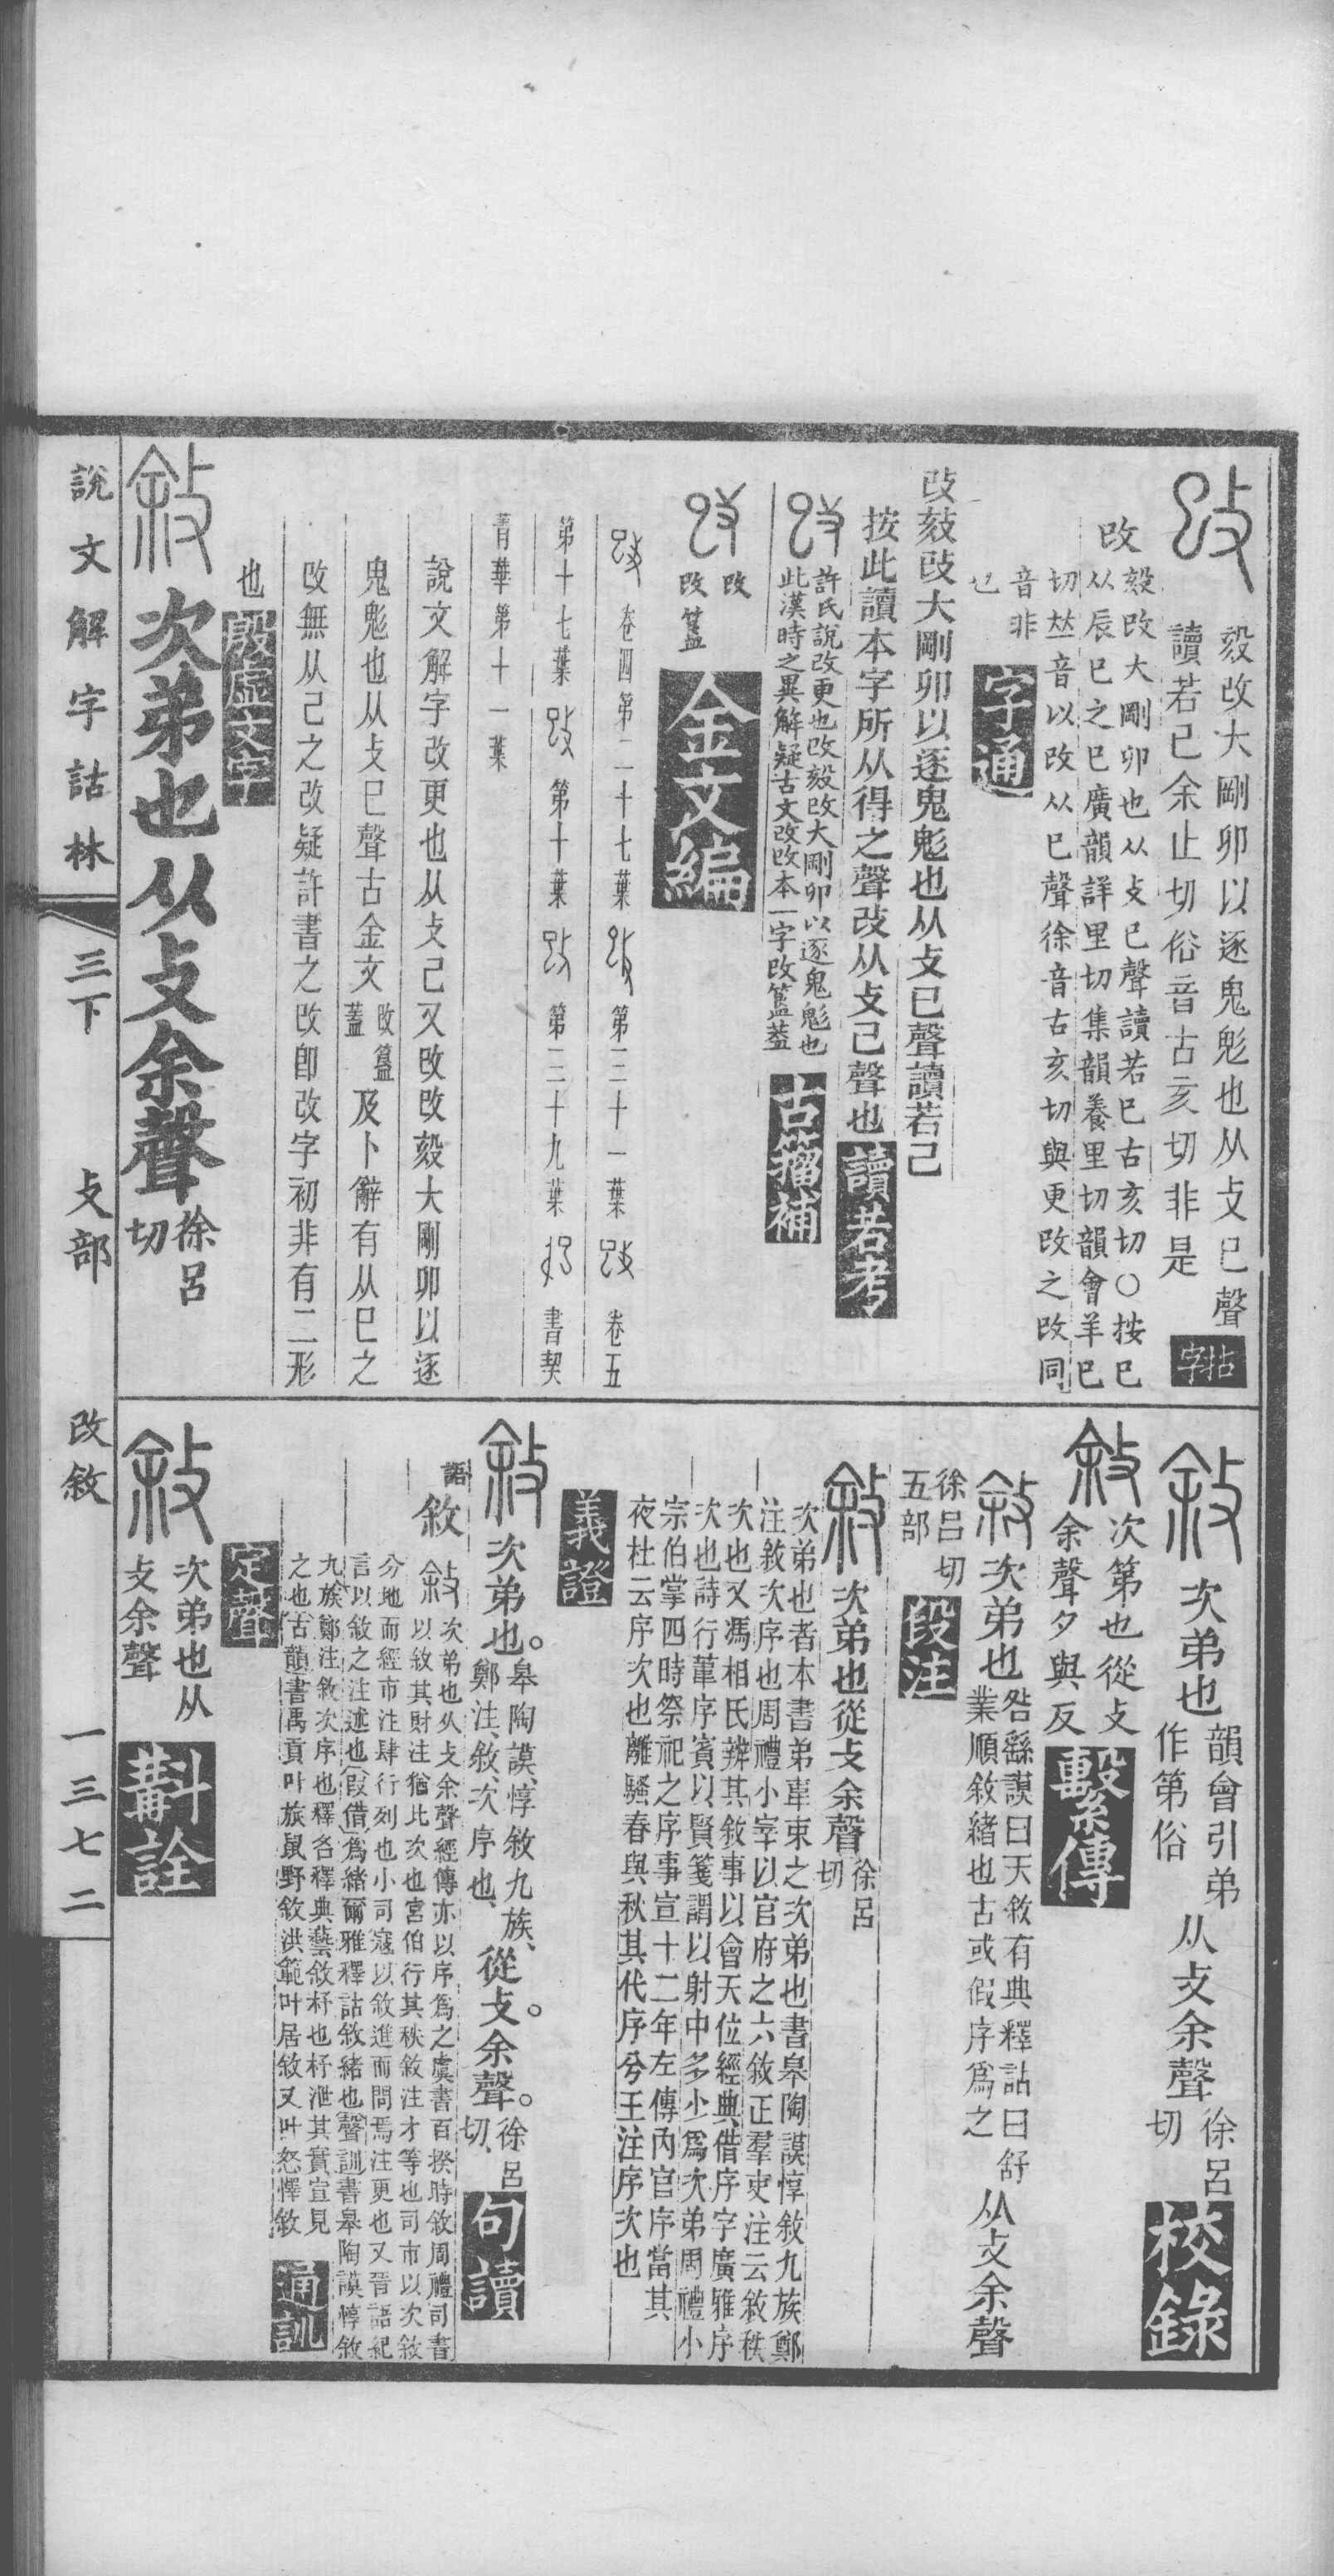 㱾改大剛卯以逐鬼鬽也从攴巳聲
讀若巳余止切俗音古亥切非是
拈字
㱾改大剛卯也从攴巳聲讀若巳古亥切○按巳
从辰巳之巳廣韻詳里切集韻養里切韻會羊巳
切𠀤音以改从巳聲徐音古亥切與更改之改同
音非
也
字通
大剛卯以逐鬼鬽也从攴巳聲讀若己
按此讀本字所从得之聲改从攴己聲也
讀若考
許氏說改更也改㱾改大剛卯以逐鬼鬽也
此漢時之異解疑古文改改本一字改簋蓋
古籀補
改
改簋
金文編
卷四第二十七葉
第三十一葉
卷五
第十七葉
第十葉
第三十九葉
書契
菁華第十一葉
說文解字改更也从攴己又改㱾大剛卯以逐
鬼鬽也从攴巳聲古金文
改簋
蓋
及卜辭有从巳之
改無从己之改疑許書之改卽改字初非有二形
也
殷虛文字
次弟也从攴余聲
徐呂
切
次弟也
韻會引弟
作第俗
从攴余聲
徐呂
切
校錄
次第也從攴
余聲夕與反
繫傳
次弟也
咎繇謨曰天敘有典釋詁曰舒
業順敘緒也古或假序爲之
从攴余聲
徐呂切
五部
段注
次弟也從攴余聲
徐呂
切
次弟也者本書弟韋束之次弟也書皋陶謨惇敘九族鄭
注敘次序也周禮小宰以官府之六敘正羣吏注云敘秩
次也又馮相氏辨其敘事以會天位經典借序字廣雅序
次也詩行葦序賓以賢箋謂以射中多少爲次弟周禮小
宗伯掌四時祭祀之序事宣十二年左傳內官序當其
夜杜云序次也離騷春與秋其代序兮王注序次也
義證
次弟也。
皋陶謨、惇敘九族、
鄭注、敘、次序也、
從攴。余聲。
徐呂
切、
句讀
語
敘
次弟也从攴余聲經傳亦以序爲之虞書百揆時敘周禮司書
以敘其財注猶比次也宮伯行其秩敘注才等也司市以次敘
分地而經市注肆行列也小司寇以敘進而問焉注更也又晉語紀
言以敘之注述也叚借爲緒爾雅釋詁敘緒也聲訓書皋陶謨惇敘
九族鄭注敘次序也釋名釋典藝敘杼也杼泄其實宣見
之也古韻書禹貢叶旅鼠野敘洪範叶居敘又叶怒懌敘
定聲
通訓
次弟也从
攴余聲
斠詮
說文解字詁林
三下
攴部
改敘
一三七二